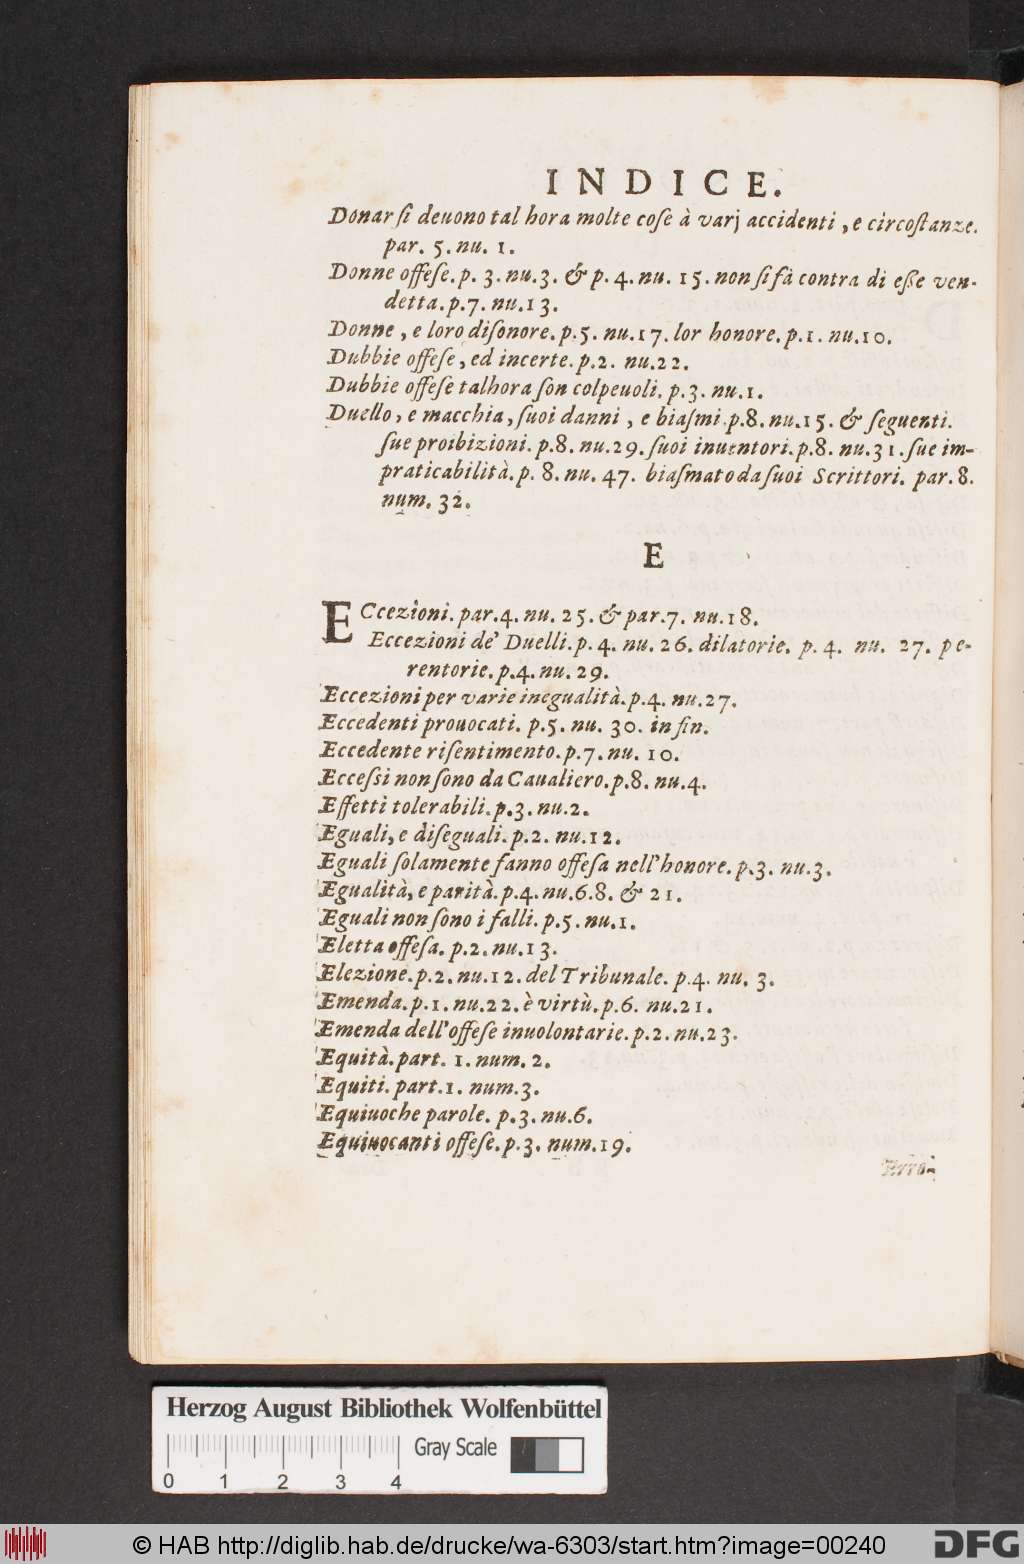 INDICE.
Donar si deuono tal hora molte cose à varj accidenti, e circostanze.
par. 5. nu. 1.
Donne offese. p. 3. nu. 3. & p. 4. nu. 15. non si fà contra di esse ven-
detta. p. 7. nu. 13.
Donne, e loro disonore. p. 5. nu. 17. lor honore. p. 1. nu. 10.
Dubbie offese, ed incerte. p. 2. nu. 22.
Dubbie offese talhora son colpeuoli. p. 3. nu. 1.
Duello, e macchia, suoi danni, e biasmi. p. 8. nu. 15. & seguenti.
sue proibizioni. p. 8. nu. 29. suoi inuentori. p. 8. nu. 31. sue im-
praticabilità. p. 8. nu. 47. biasmato da suoi Scrittori. par. 8.
num. 32.
E
ECcezioni. par. 4. nu. 25. & par. 7. nu. 18.
Eccezioni de' Duelli. p. 4. nu. 26. dilatorie. p. 4. nu. 27. pe-
rentorie. p. 4. nu. 29.
Eccezioni per varie inegualità. p. 4. nu. 27.
Eccedenti prouocati. p. 5. nu. 30. in fin.
Eccedente risentimento. p. 7. nu. 10.
Eccessi non sono da Caualiero. p. 8. nu. 4.
Effetti tolerabili. p. 3. nu. 2.
Eguali, e diseguali. p. 2. nu. 12.
Eguali solamente fanno offesa nell'honore. p. 3. nu. 3.
Egualità, e parità. p. 4. nu. 6. 8. & 21.
Eguali non sono i falli. p. 5. nu. 1.
Eletta offesa. p. 2. nu. 13.
Elezione. p. 2. nu. 12. del Tribunale. p. 4. nu. 3.
Emenda. p. 1. nu. 22. è virtù. p. 6. nu. 21.
Emenda dell'offese inuolontarie. p. 2. nu. 23.
Equità. part. 1. num. 2.
Equiti. part. 1. num. 3.
Equiuoche parole. p. 3. nu. 6.
Equiuocanti offese. p. 3. num. 19.
Erro-
Herzog August Bibliothek Wolfenbüttel
Gray Scale
0 1 2 3 4
© HAB http://diglib.hab.de/drucke/wa-6303/start.htm?image=00240
DFG